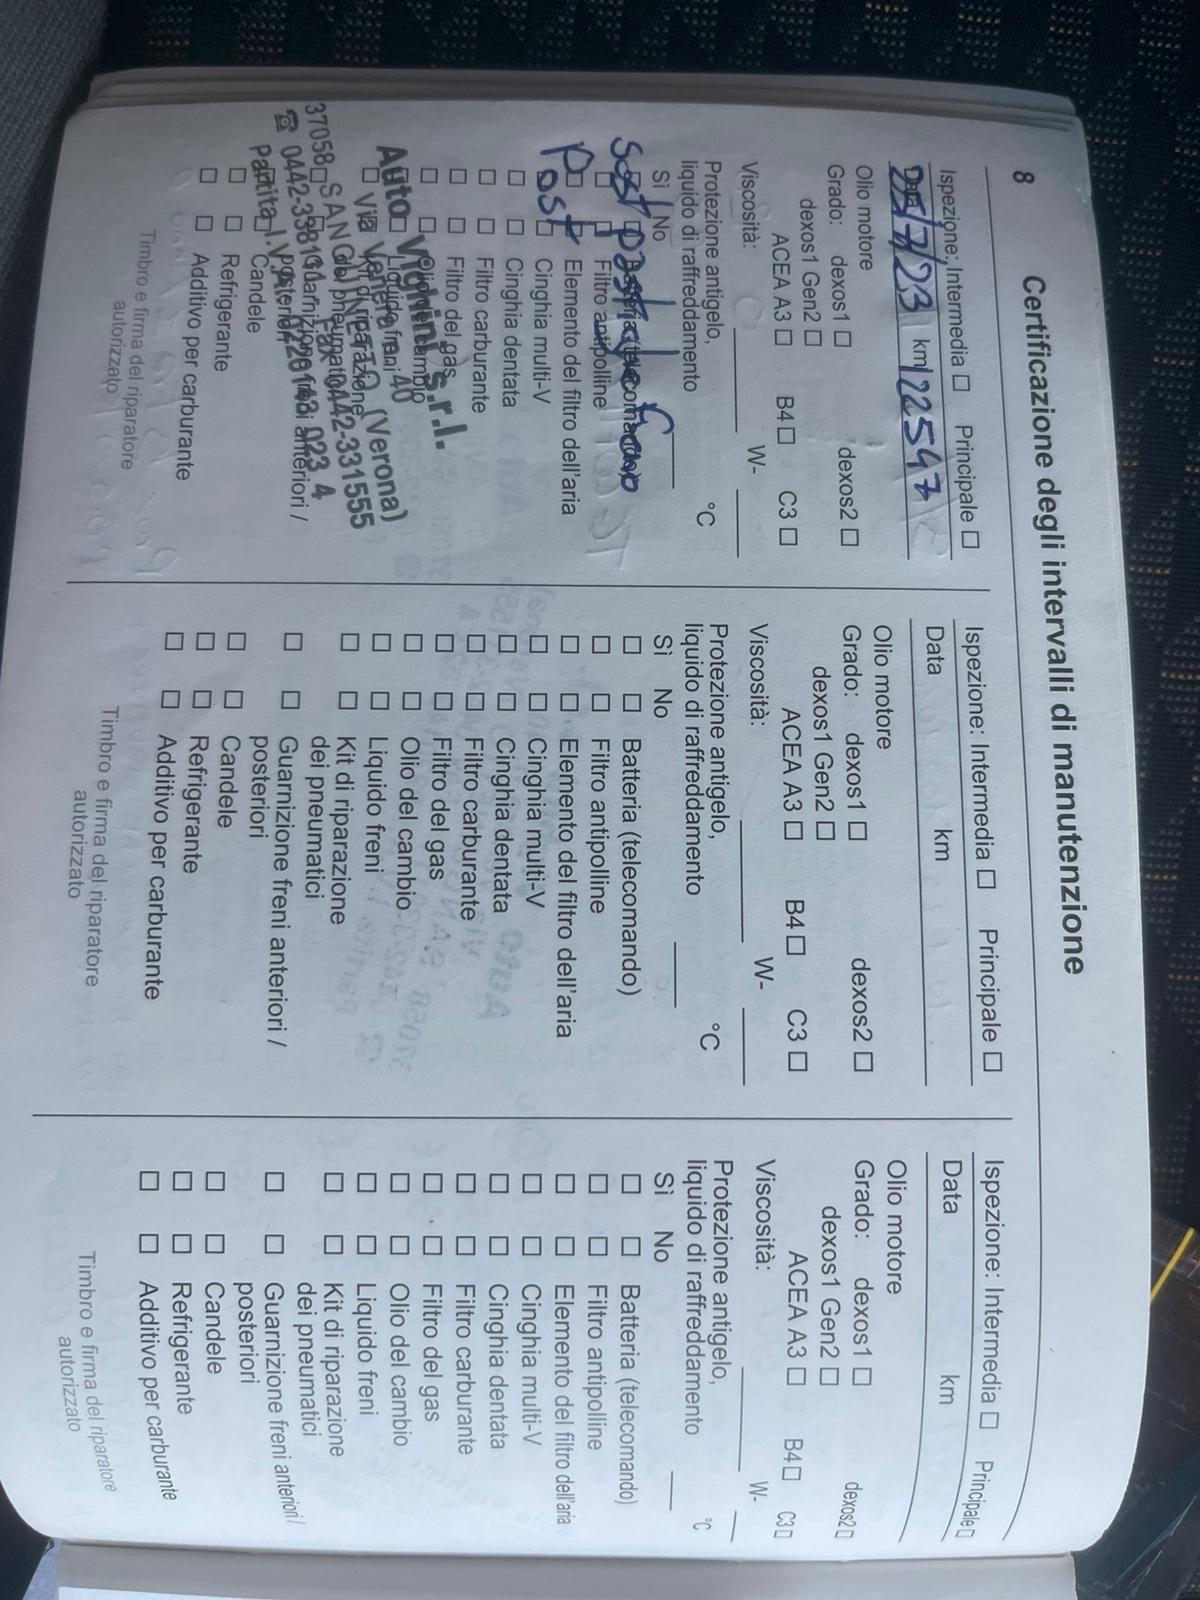 8
Certificazione degli intervalli di manutenzione
Ispezione: Intermedia □ Principale □
25/7/23 km 122547
Olio motore
Grado: dexos1 □ dexos2 □
dexos1 Gen2 □
ACEA A3 □ B4 □ C3 □
Viscosità: W-
Protezione antigelo,
liquido di raffreddamento °C
Sì No
Sost past
Post
□ □ Filtro antipolline
□ □ Elemento del filtro dell'aria
□ □ Cinghia multi-V
□ □ Cinghia dentata
□ □ Filtro carburante
□ □ Filtro del gas
Auto Vighini s.r.l.
Via Venera, 40
37058 SANGUINETTO (Verona)
☎ 0442-338130 Fax 0442-331555
Partita I.V.A.
□ □ Candele
□ □ Refrigerante
□ □ Additivo per carburante
Timbro e firma del riparatore
autorizzato
Ispezione: Intermedia □ Principale □
Data km
Olio motore
Grado: dexos1 □ dexos2 □
dexos1 Gen2 □
ACEA A3 □ B4 □ C3 □
Viscosità: W-
Protezione antigelo,
liquido di raffreddamento °C
Sì No
□ □ Batteria (telecomando)
□ □ Filtro antipolline
□ □ Elemento del filtro dell'aria
□ □ Cinghia multi-V
□ □ Cinghia dentata
□ □ Filtro carburante
□ □ Filtro del gas
□ □ Olio del cambio
□ □ Liquido freni
□ □ Kit di riparazione
dei pneumatici
□ □ Guarnizione freni anteriori /
posteriori
□ □ Candele
□ □ Refrigerante
□ □ Additivo per carburante
Timbro e firma del riparatore
autorizzato
Ispezione: Intermedia □ Principale □
Data km
Olio motore
Grado: dexos1 □ dexos2 □
dexos1 Gen2 □
ACEA A3 □ B4 □ C3 □
Viscosità: W-
Protezione antigelo,
liquido di raffreddamento °C
Sì No
□ □ Batteria (telecomando)
□ □ Filtro antipolline
□ □ Elemento del filtro dell'aria
□ □ Cinghia multi-V
□ □ Cinghia dentata
□ □ Filtro carburante
□ □ Filtro del gas
□ □ Olio del cambio
□ □ Liquido freni
□ □ Kit di riparazione
dei pneumatici
□ □ Guarnizione freni anteriori /
posteriori
□ □ Candele
□ □ Refrigerante
□ □ Additivo per carburante
Timbro e firma del riparatore
autorizzato